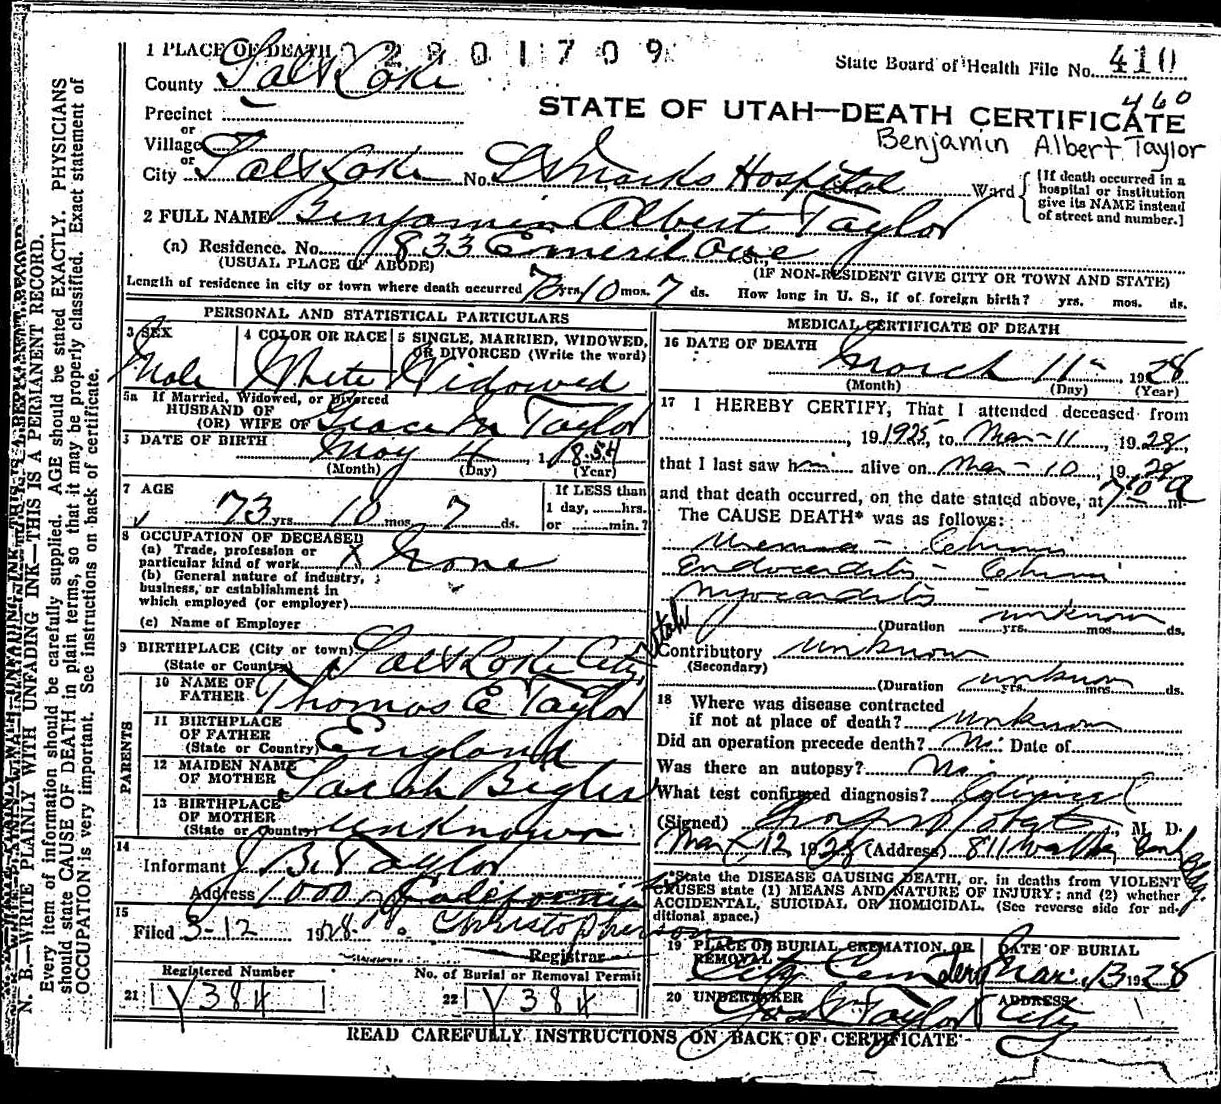 1 PLACE OF DEATH 2801709
State Board of Health File No. 410
460
County Salt Lake
STATE OF UTAH—DEATH CERTIFICATE
Precinct
or
Benjamin Albert Taylor
Village
or
City Salt Lake No. St Marks Hospital Ward
[If death occurred in a
hospital or institution
give its NAME instead
of street and number.]
2 FULL NAME Benjamin Albert Taylor
(a) Residence. No. 1833 Ave St.,
(USUAL PLACE OF ABODE) (IF NON-RESIDENT GIVE CITY OR TOWN AND STATE)
Length of residence in city or town where death occurred 73 yrs. 10 mos. 7 ds. How long in U. S., if of foreign birth? yrs. mos. ds.
PERSONAL AND STATISTICAL PARTICULARS
3 SEX
Male
4 COLOR OR RACE
White
5 SINGLE, MARRIED, WIDOWED,
OR DIVORCED (Write the word)
Widowed
5a If Married, Widowed, or Divorced
HUSBAND OF
(OR) WIFE OF Grace M Taylor
DATE OF BIRTH May 4 1854
(Month) (Day) (Year)
7 AGE
73 yrs. 10 mos. 7 ds.
If LESS than
1 day, hrs.
or min.?
8 OCCUPATION OF DECEASED
(a) Trade, profession or
particular kind of work X None
(b) General nature of industry,
business, or establishment in
which employed (or employer)
(c) Name of Employer
9 BIRTHPLACE (City or town) Salt Lake City Utah
(State or Country)
PARENTS
10 NAME OF
FATHER Thomas E Taylor
11 BIRTHPLACE
OF FATHER
(State or Country) England
12 MAIDEN NAME
OF MOTHER Sarah Bigler
13 BIRTHPLACE
OF MOTHER
(State or Country) unknown
14
Informant J B Taylor
Address 1000 California
15
Filed 3-12 1928 Christopherson
Registrar
Registered Number
21 384
No. of Burial or Removal Permit
22 384
MEDICAL CERTIFICATE OF DEATH
16 DATE OF DEATH
March 11 1928
(Month) (Day) (Year)
17 I HEREBY CERTIFY, That I attended deceased from
, 19 1925, to Mar-11, 1928,
that I last saw him alive on Mar-10, 1928
and that death occurred, on the date stated above, at 7 10 a m.
The CAUSE DEATH* was as follows:
Uremia - Chronic
Endocarditis - Chronic
Myocarditis
unknown
(Duration yrs. mos. ds.
Contributory unknown
(Secondary)
(Duration unknown yrs. mos. ds.
18 Where was disease contracted
if not at place of death? unknown
Did an operation precede death? No. Date of
Was there an autopsy? No.
What test confirmed diagnosis? Clinical
(Signed) , M. D.
Mar 12 1928 (Address) 811 Walker Bank Bldg.
*State the DISEASE CAUSING DEATH, or, in deaths from VIOLENT
CAUSES state (1) MEANS AND NATURE OF INJURY; and (2) whether
ACCIDENTAL, SUICIDAL OR HOMICIDAL. (See reverse side for ad-
ditional space.)
19 PLACE OF BURIAL, CREMATION, OR
REMOVAL
City Cemetery
DATE OF BURIAL
Mar. 13 1928
20 UNDERTAKER
Jos Taylor
ADDRESS
City
READ CAREFULLY INSTRUCTIONS ON BACK OF CERTIFICATE
N. B.—WRITE PLAINLY WITH UNFADING INK—THIS IS A PERMANENT RECORD.
Every item of information should be carefully supplied. AGE should be stated EXACTLY. PHYSICIANS
should state CAUSE OF DEATH in plain terms, so that it may be properly classified. Exact statement of
OCCUPATION is very important. See instructions on back of certificate.